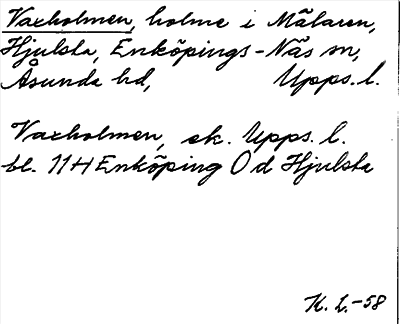 Vaxholmen, holme i Mälaren,
Hjulsta, Enköpings-Näs sn,
Åsunda hd, Upps.l.
Vaxholmen, ek. Upps. l.
bl. 11H Enköping 0 d Hjulsta
K. L.-58